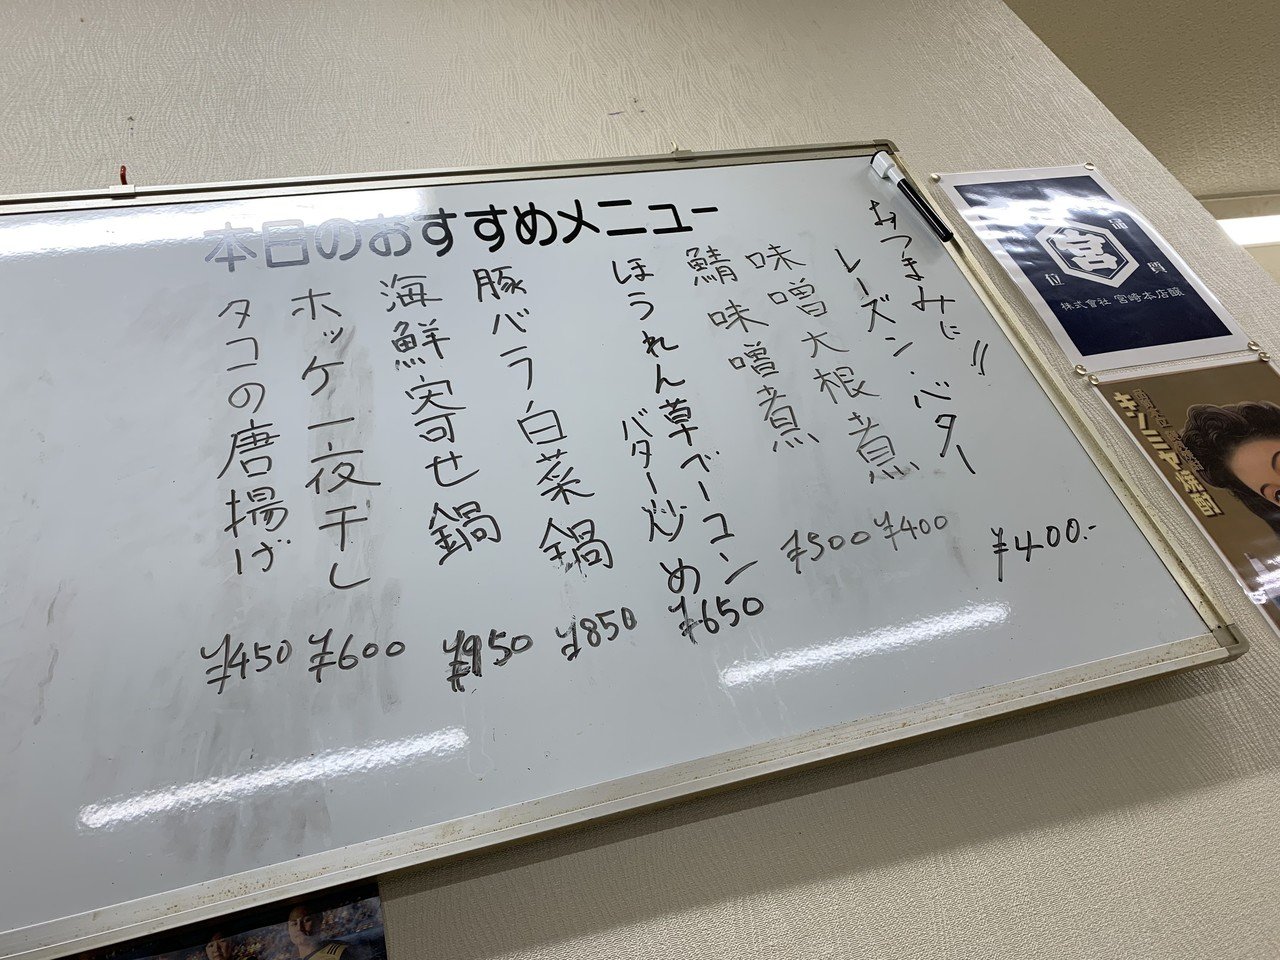 本日のおすすめメニュー
おつまみに!!
レーズン・バター ¥400.-
味噌大根煮 ¥400
鯖味噌煮 ¥500
ほうれん草ベーコン
バター炒め ¥650
豚バラ白菜鍋 ¥850
海鮮寄せ鍋 ¥950
ホッケ一夜干し ¥600
タコの唐揚げ ¥450
宮
株式會社 宮﨑本店釀
キンミヤ焼酎